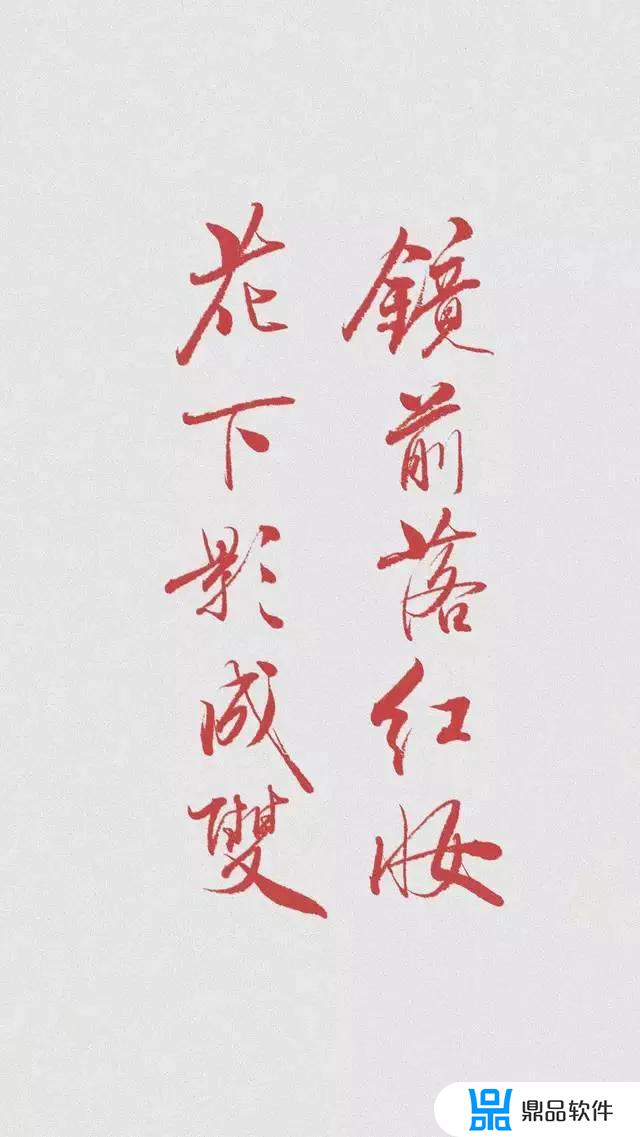 鏡前落红妆
花下影成雙
鼎品软件